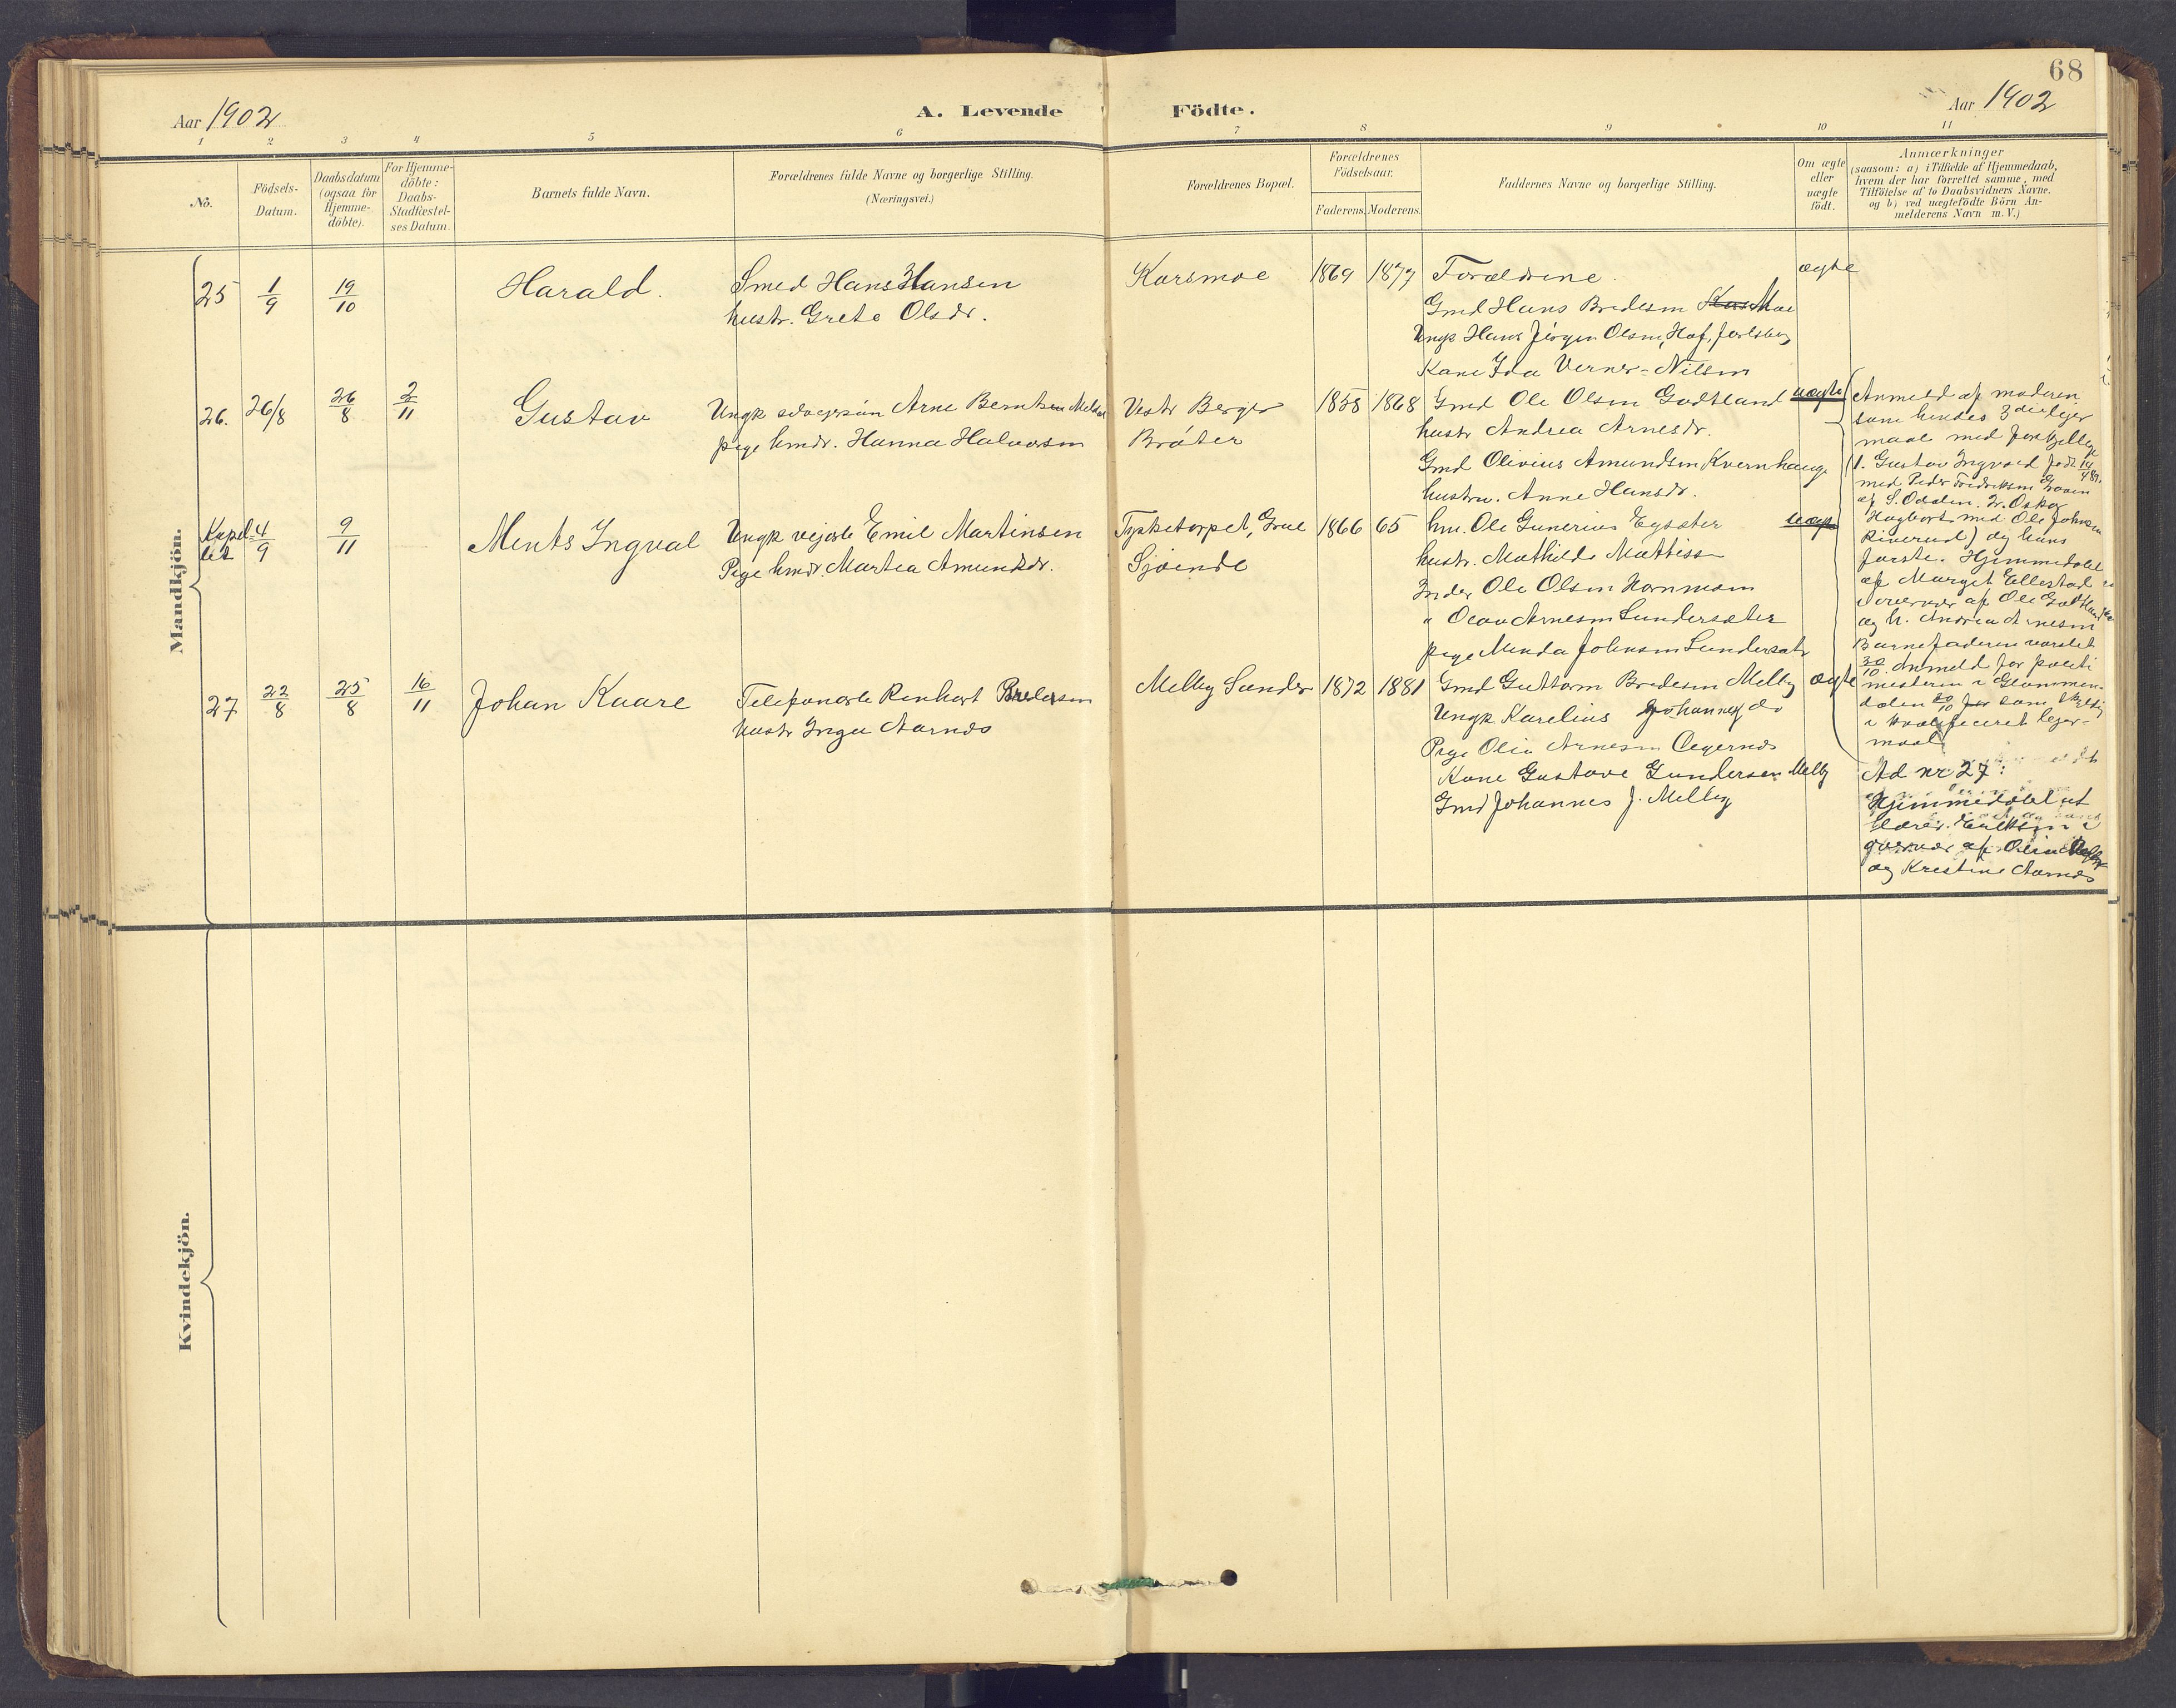 68
Aar 1902
A. Levende Födte.
Aar 1902
1 2 3 4 5 6 7 8 9 10 11
No.
Födsels-Datum.
Daabsdatum (ogsaa for Hjemme-döbte).
For Hjemme-döbte: Daabs-Stadfæstel-ses Datum.
Barnets fulde Navn.
Forældrenes fulde Navne og borgerlige Stilling.
(Næringsvei.)
Forældrenes Bopæl.
Forældrenes Födselsaar.
Faderens. Moderens.
Faddernes Navne og borgerlige Stilling.
Om ægte eller uægte födt.
Anmærkninger
(saasom: a) i Tilfælde af Hjemmedaab,
hvem der har forrettet samme, med
Tilföielse af to Daabsvidners Navne.
og b) ved uægtefödte Börn An-
melderens Navn m. V.)
Mandkjön.
25 1/9 19/10 Harald.
Smed Hans Hansen
hustr. Grete Olsdr.
Karsmoe 1869 1877
Forældrene.
Gmd Hans Bredesen Moe
Ungk Hans Jörgen Olsen, Hof, Jarlsberg
Kone Ida Verner-Nilsen
ægte
26. 26/8 26/8 2/11 Gustav
Ungk Arne Berntsen
pige hmdr. Hanna Halvorsen
Vestr Berger
Bråter
1858 1868
Gmd Ole Olsen Godtland
hustr Andrea Arnesdr.
Gmd Olivius Amundsen Kvernhauge
hustru. Anne Hansdr.
uægte
Anmeld af moderen
som hendes 3die leier
maal med forskjellige
1. Gustav Ingvald født 14/4 89.
med Peder Fredriksen
af S. Odalen. 2. Oskar
Hagbart med Ole Johnsen
) og hans
første. Hjemmedøbt
af Margit Ellestad
i overvær af Ole Godtland
og h. Andrea Arnesen
Barnefaderen varslet
30/10. Anmeld for politi
mesteren i Glommen-
dalen 30/10 som skyldig
i kvalificeret leger-
maal
Kapel-let 4/9 9/11 Ments Ingval
Ungk vejarb Emil Martinsen
Pige hmdr. Martea Amundsdr.
Tysketorpet, Grue
Sjøende
1866 65
hm. Ole Gunerius Eysæter
hustr. Mathilde Mattiss
Inder Ole Olsen Hornmoen
" Olav Arnesen Sundersæter
pige Minda Johnsen Sundersætr
uægte
27 22/8 25/8 16/11 Johan Kaare
Telefonarb Renhart Bredesen
hustr Inga Aarnes
Melby Sander 1872 1881
Gmd Guttorm Bredesen Melby
Ungk Karelius Johannes do
Pige Olia Arnesen
Kone Gustave Gundersen Melby
Gmd Johannes J. Melby
ægte
Ad nr 27:
Hjemmedøbt af
lærer. Eriksen i
overvær af Olia
og Kristine Aarnes
Kvindekjön.